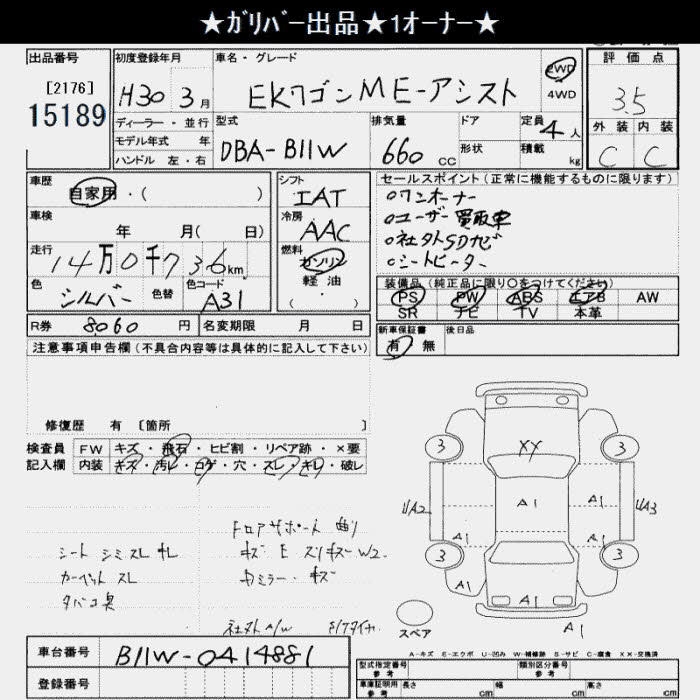 ★ガリバー出品★1オーナー★
出品番号
[2176]
15189
初度登録年月
H30 3月
車名・グレード
EKワゴン ME-アシスト
2WD
4WD
評価点
3.5
外装 内装
C C
ディーラー・並行
モデル年式 年
ハンドル 左・右
型式
DBA-B11W
排気量
660 CC
ドア
形状
定員
4人
積載 kg
車歴
自家用・( )
車検
年 月(日)
走行
14万0千736km
色
シルバー
色替
色コード
A31
シフト
IAT
冷房
AAC
燃料
ガソリン
軽油
( )
セールスポイント(正常に機能するものに限ります)
○ワンオーナー
○ユーザー買取車
○社外SDナビ
○シートヒーター
装備品(純正品に限り○をつけてください)
PS PW ABS エアB AW
SR ナビ TV 本革
R券 8060円
名変期限 月 日
新車保証書
有 無
後日品
注意事項申告欄(不具合内容等は具体的に記入して下さい)
修復歴 有 [箇所 ]
検査員
記入欄
FW キズ・飛石・ヒビ割・リペア跡・×要
内装 キズ・汚レ・コゲ・穴・スレ・キレ・破レ
シート シミ スレ キレ
カーペット スレ
タバコ臭
ドロアサポート 曲り
キズ E スリキズ W2
ミラー キズ
社外A/W
XX
3 3
A1 A1
UA2 UA3
A1
3 3
A1 A1
A1
A1
スペア
A-キズ E-エクボ U-凹み W-補修跡 S-サビ C-腐食 XX-交換済
車台番号
B11W-0414881
登録番号
型式指定番号
参考
類別区分番号
参考
車庫証明用
参考
長さ cm 幅 cm 高さ cm